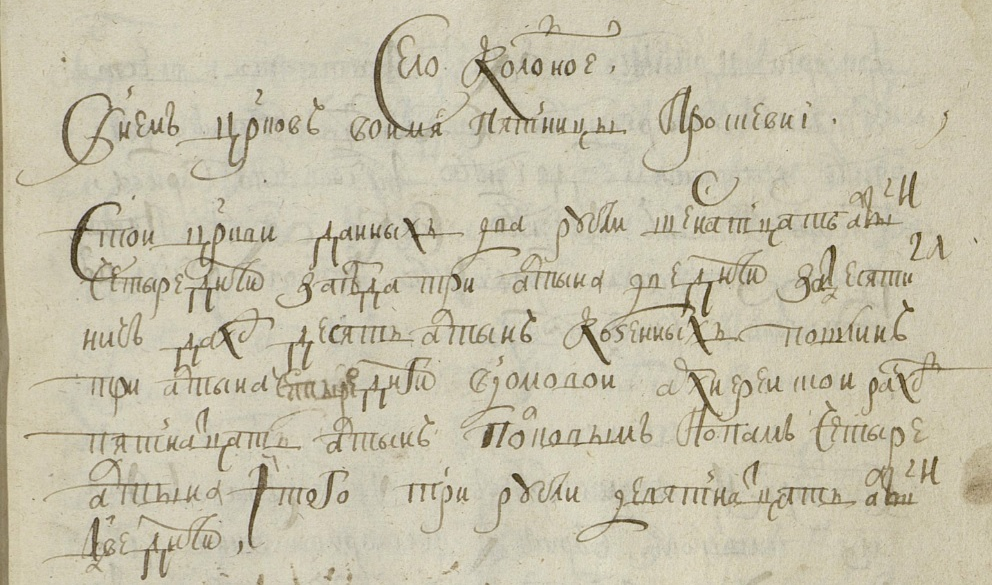 Село Колоное,
Внемъ црковь воимя пятницы Прошеви.
Стои цркви данныхъ два рубли шеснатцать алтн
четыре днги заезда три алтына две днги Задесяти
нич дахо десять алтынъ Козенныхъ пошлинъ
три алтына четыре днги Вдомовои архиереи шои расхо
пятнатцать алтынъ Поповымъ Попамъ Четыре
алтына Итого три рубли девятнатцать алтн
две днги,